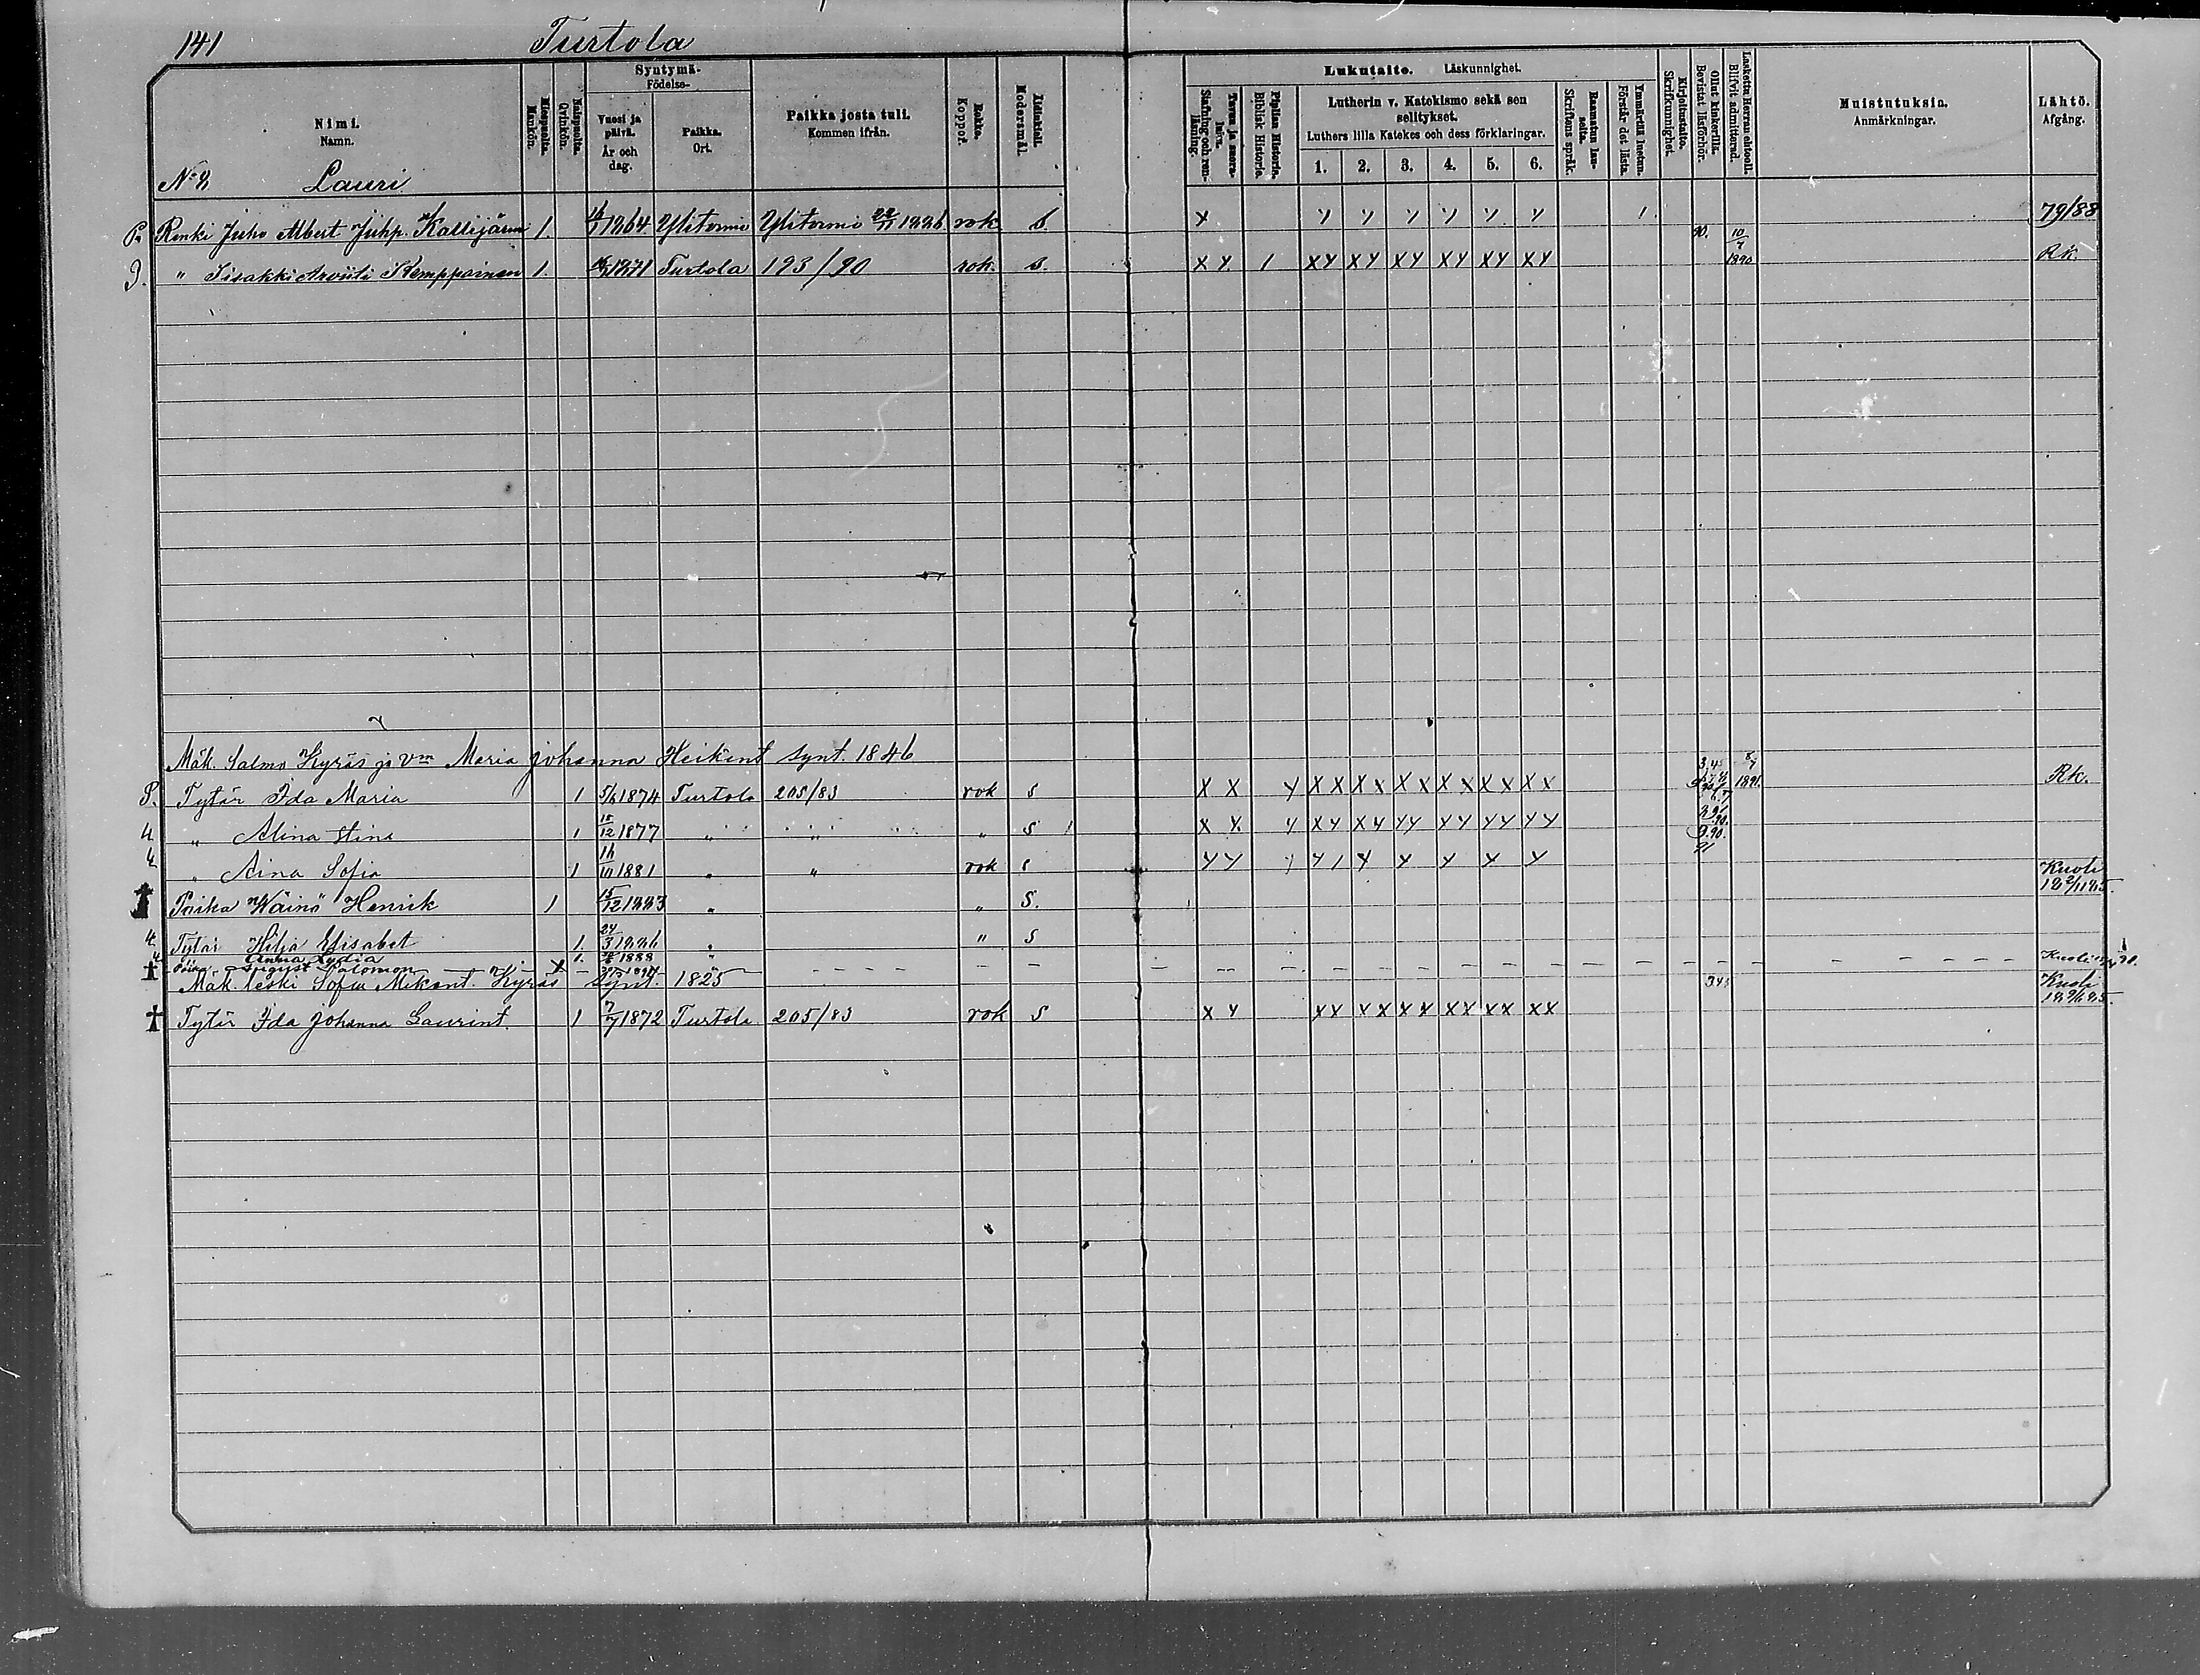 141 Turtola
Nimi. Namn.
Miespuolta. Mankön.
Naispuolta. Qvinkön.
Syntymä- Födelse-
Vuosi ja päivä. År och dag.
Paikka. Ort.
Paikka josta tuli. Kommen ifrån.
Rokko. Koppor.
Äidinkieli. Modersmål.
Lukutaito. Läskunnighet.
Tavuu ja suora-luku. Stafning och ren-läsning.
Piplian Historia. Biblisk Historie.
Lutherin v. Katekismo sekä sen selitykset.
Luthers lilla Katekes och dess förklaringar.
1. 2. 3. 4. 5. 6.
Raamatun lau-seita. Skriftens språk.
Ymmärtää luetun. Förstår det lästa.
Kirjoitustaito. Skrifkunnighet.
Ollut kinkerillä. Bevistat läsförhör.
Laskettu Herran ehtoolle. Blifvit admitterad.
Muistutuksia. Anmärkningar.
Lähtö. Afgång.
No 8 Lauri
P. Renki Juho Albert Juhp. Kallijärvi 1. 1864 Ylitornio Ylitornio 1886 rok s. x y y y y y y 1 79/88
" Iisakki Arviiti Kemppainen 1. 1871 Turtola 193/90 rok. s. x y. 1 xy xy xy xy xy xy 90. 10/4 1890 Rk.
Mäk. Salmo Kyräs ja vm Maria Johanna Heikint synt. 1846
8. Tytär Ida Maria 1 5/6 1874 Turtola 205/83 rok s x x y x x x x x x x x x x x x 1891. Rk.
4 " Alina Stina 1 18/12 1877 " " " s x y. y xy xy yy yy yy yy
4 " Aina Sofia 1 1881 " " rok s y y y 1 y y y y y 91
† Poika "Wäinö" Henrik 1 15/12 1883 " " s. Kuoli
4 Tytär Hilja Elisabet 1. 24/3 1886 " " s
4 " Anna Lydia 1. 1888 "
† Poika August Salomon x Kuoli
Mäk. leski Sofia Mikont. Kyräs synt. 1825 Kuoli
† Tytär Ida Johanna Laurint. 1 7/7 1872 Turtola 205/83 rok s x y xx xx xx xx xx xx